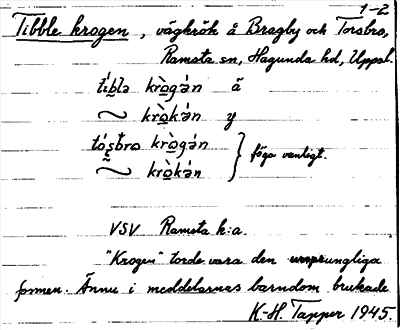 1-2
Tibble krogen, vägkrök å Bragby och Torsbro,
Ramsta sn, Hagunda hd, Uppsl.
tíblə krò̱gán ä
~ krò̱kán y
tó̱ʂtro krò̱gán } föga vanligt.
~ krò̱kán
VSV Ramsta k:a.
"Krogen" torde vara den ursprungliga
formen. Ännu i meddelarnas barndom brukade
K-H. Tapper 1945.